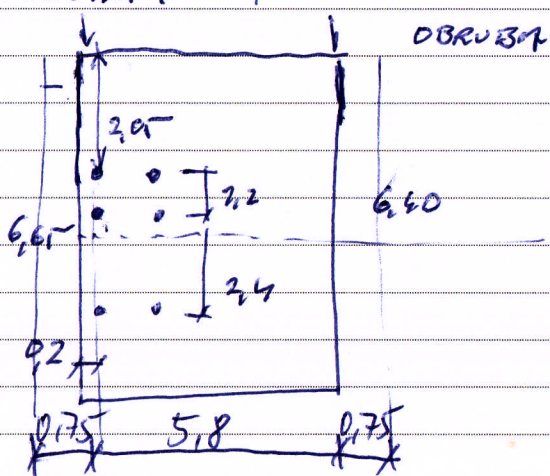 OBRUBA
2,05
2,2
6,40
6,65
2,4
0,2
0,75 5,8 0,75